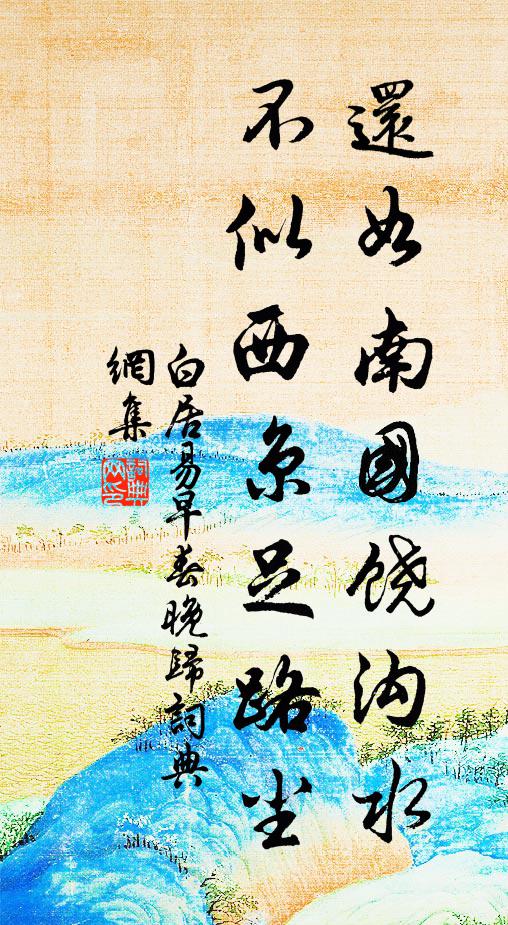 還如南國饶沟水
不似西京足路尘
白居易早春晚歸詞典
網集
詞典
网印